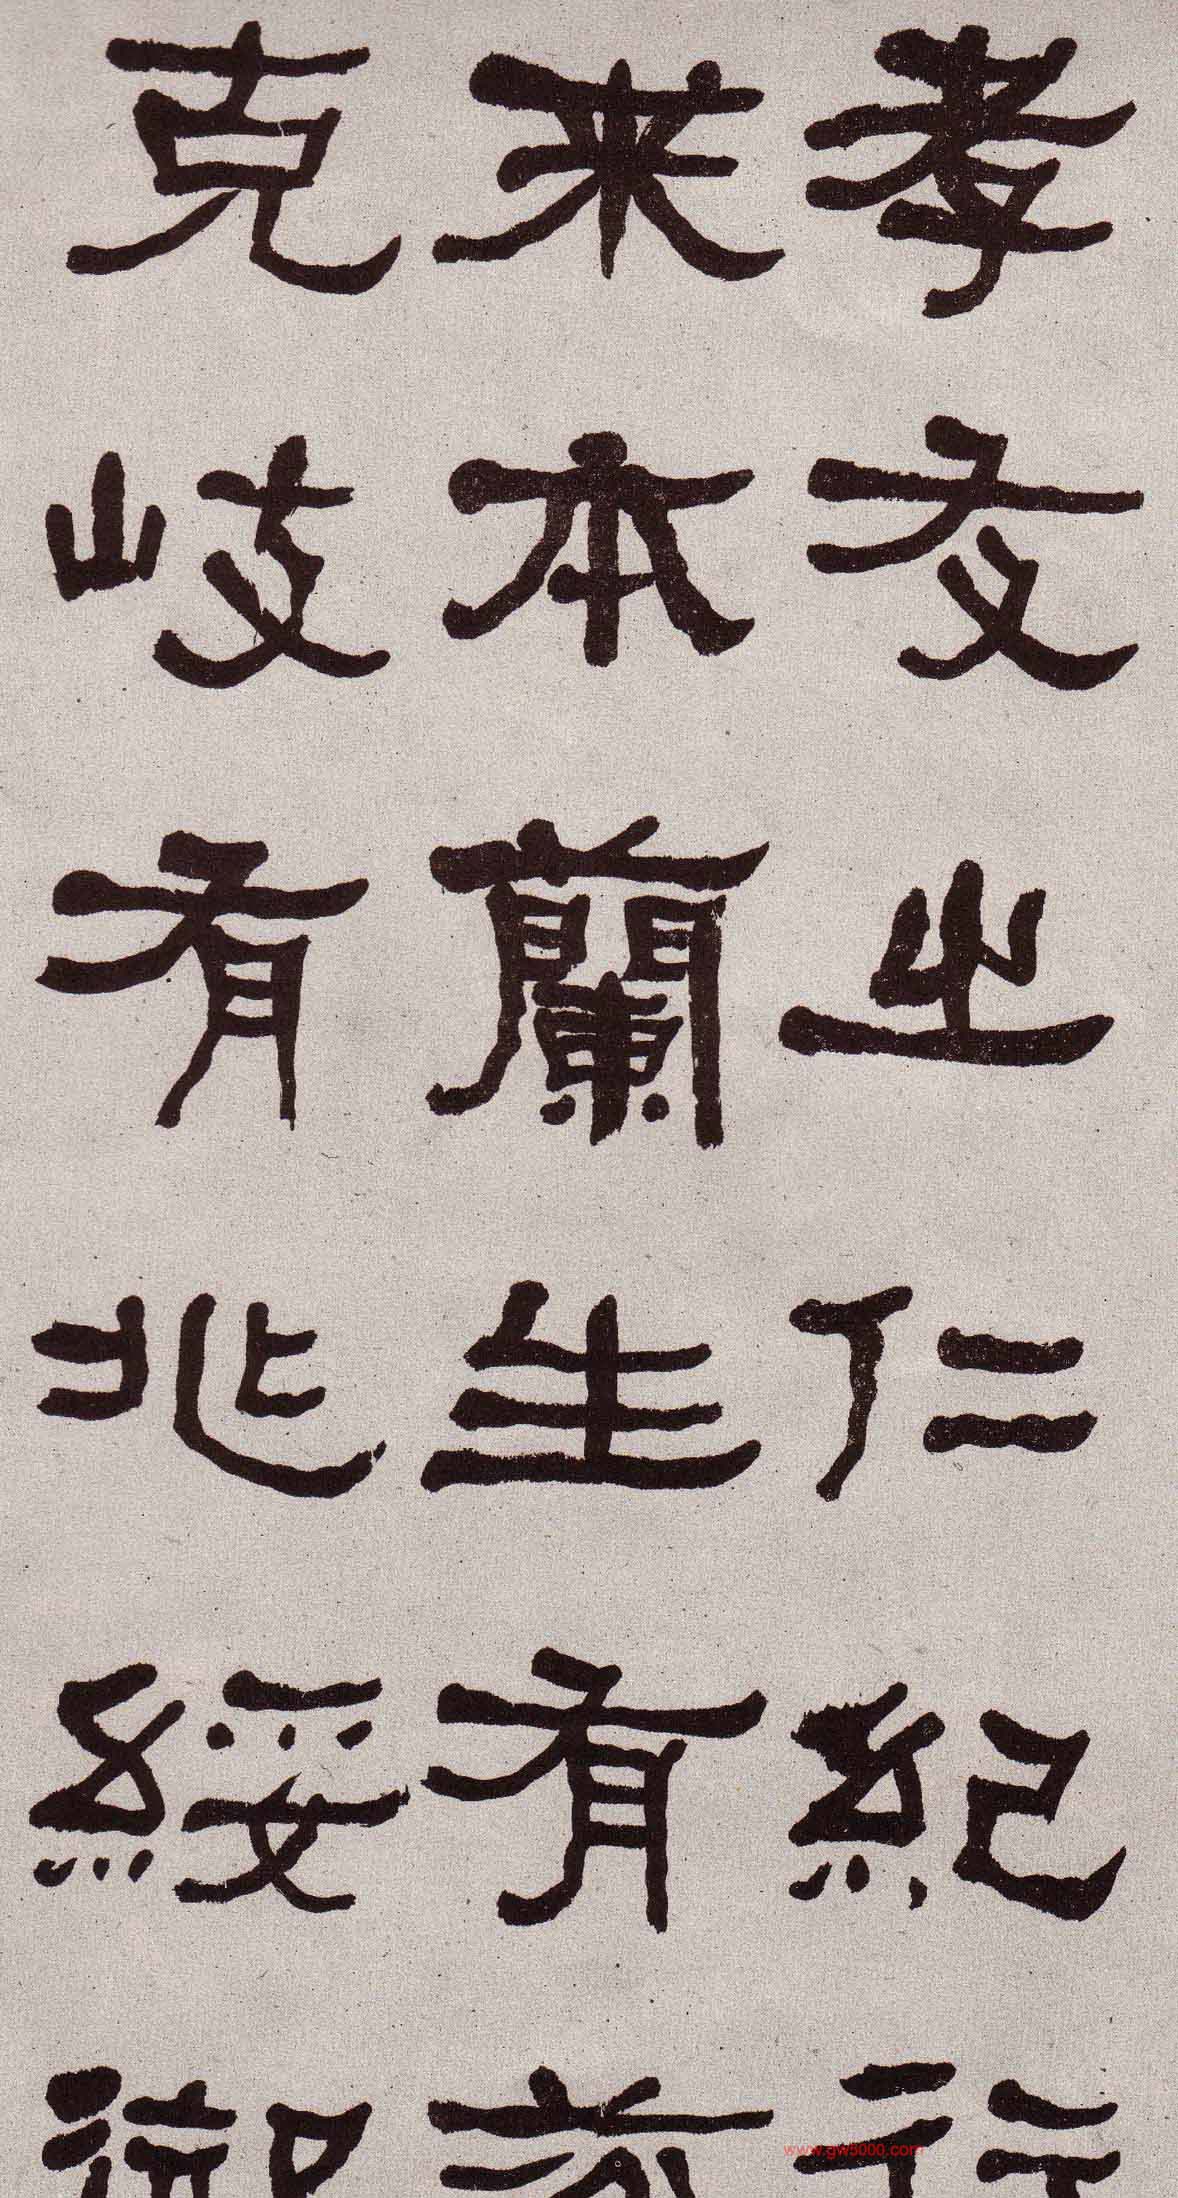 孝友之仁紀行
來本蘭生有芬
克岐有兆綏御
www.gw5000.com